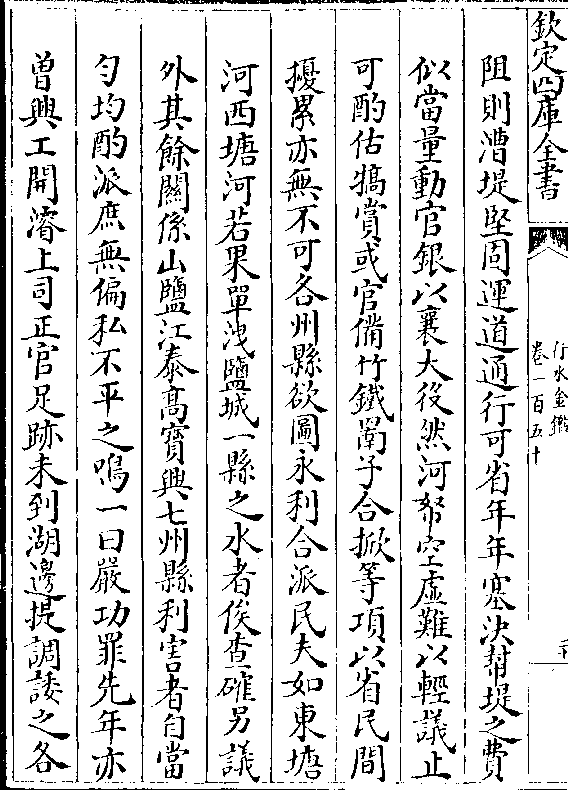 欽定四庫全書
行水金鑑
卷一百五十
阻則漕堤堅固運道通行可省年年塞決幇堤之費
似當量動官銀以襄大役然河帑空虛難以輕議止
可酌估犒賞或官備竹鐵罱子合掀等項以省民間
擾累亦無不可各州縣欲圖永利合派民夫如東塘
河西塘河若果單洩鹽城一縣之水者俟查確另議
外其餘關係山鹽江泰高寶興七州縣利害者自當
勻均酌派庶無偏私不平之鳴一曰嚴功罪先年亦
曽興工開濬上司正官足跡未到湖邊提調諉之各